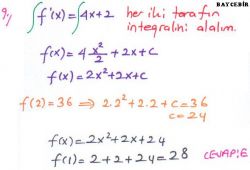 BAYCEBİR
9) ∫f'(x) = ∫4x+2 her iki tarafın
integralini alalım.
f(x) = 4 x²/2 + 2x + c
f(x) = 2x²+2x+c
f(2) = 36 ⇒ 2.2² + 2.2 + c = 36
c = 24
f(x) = 2x²+2x+24
f(1) = 2+2+24 = 28 CEVAP: E